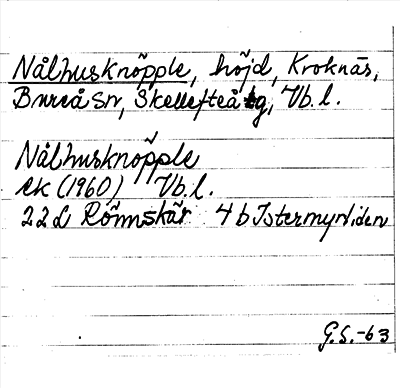 Nålhusknöpple, höjd, Kroknäs,
Bureå sn, Skellefteå tg, Vb. l.
Nålhusknöpple
ek (1960) Vb. l.
22 L Rönnskär 4 b Istermyrliden
G.S.-63